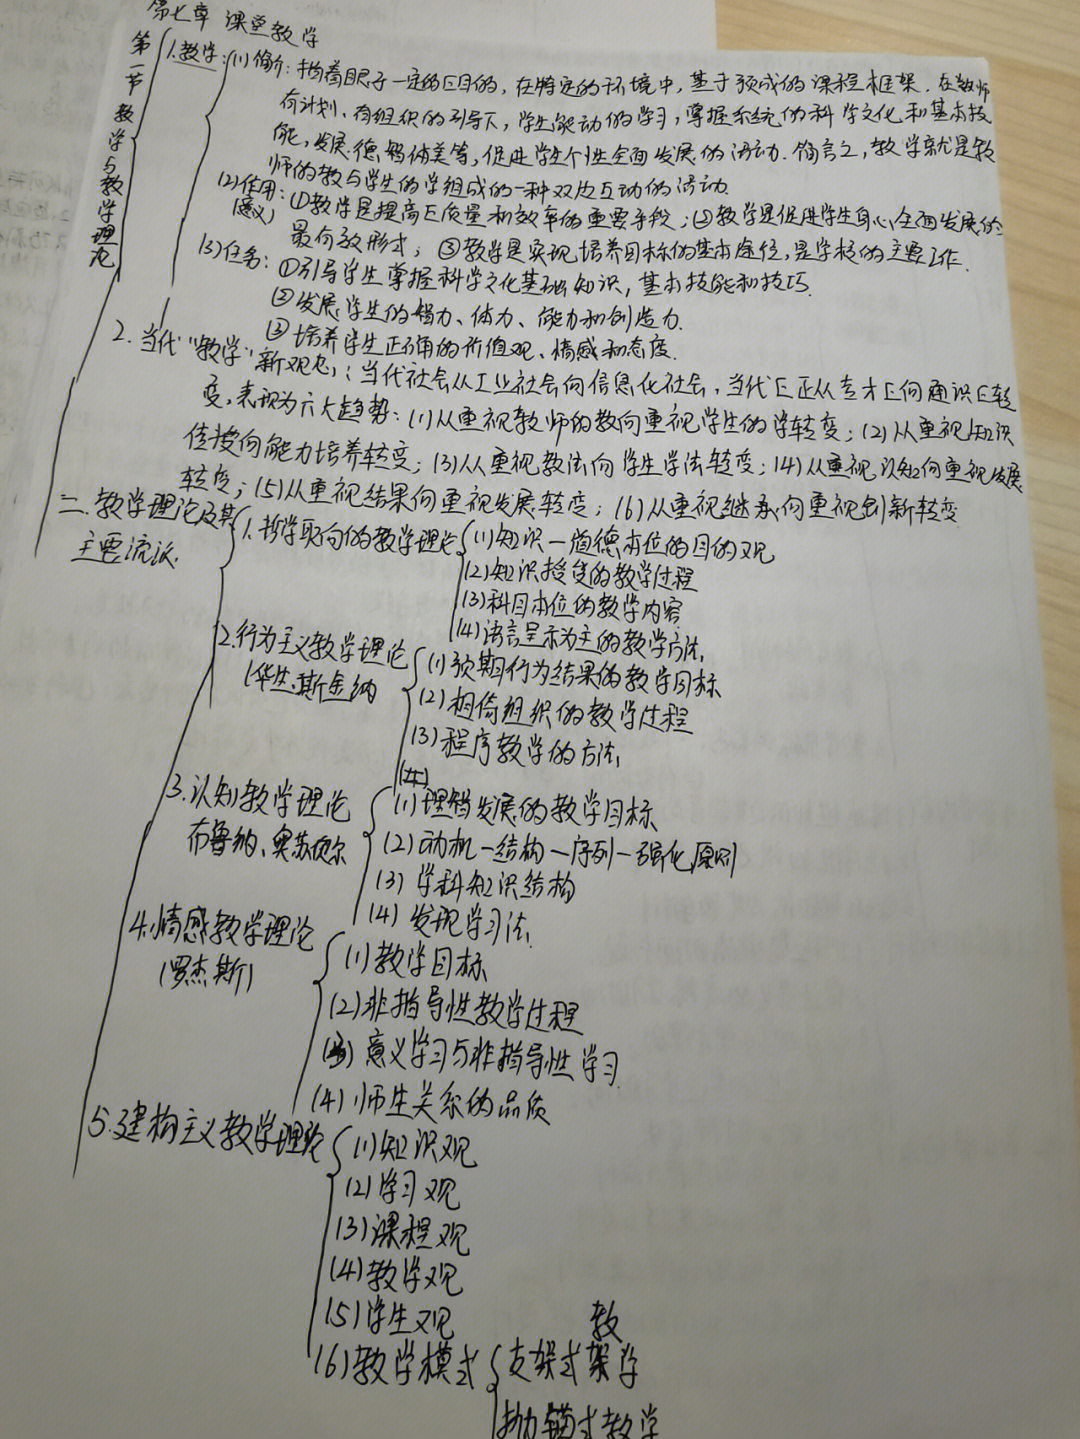 第七章 课堂教学
第一节 教学与教学理论
1.教学：(1)简介：指着眼于一定的E目的，在特定的环境中，基于预成的课程框架．在教师
有计划、有组织的引导下，学生能动的学习，掌握系统的科学文化和基本技
能，发展德智体美等，促进学生个性全面发展的活动．简言之，教学就是教
师的教与学生的学组成的一种双边互动的活动．
(2)作用：①教学是提高E质量和效率的重要手段；②教学是促进学生身心全面发展的
(意义) 最有效形式；③教学是实现培养目标的基本途径，是学校的主要工作．
(3)任务：①引导学生掌握科学文化基础知识，基本技能和技巧．
②发展学生的智力、体力、能力和创造力．
③培养学生正确的价值观、情感和态度．
2.当代"教学"新观念：当代社会从工业社会向信息化社会，当代E正从专才E向通识E转
变，表现为六大趋势：(1)从重视教师的教向重视学生的学转变；(2)从重视知识
传授向能力培养转变；(3)从重视教法向学生学法转变；(4)从重视认知向重视发展
转变；(5)从重视结果向重视发展转变；(6)从重视继承向重视创新转变
二.教学理论及其
主要流派．
1.哲学取向的教学理论
(1)知识—道德本位的目的观
(2)知识授受的教学过程
(3)科目本位的教学内容
(4)语言呈示为主的教学方法．
2.行为主义教学理论
(华生．斯金纳
(1)预期行为结果的教学目标
(2)相倚组织的教学过程
(3)程序教学的方法．
3.认知教学理论
布鲁纳、奥苏贝尔
(1)理智发展的教学目标
(2)动机—结构—序列—强化原则
(3)学科知识结构
(4)发现学习法．
4.情感教学理论
(罗杰斯)
(1)教学目标
(2)非指导性教学过程
(3)意义学习与非指导性学习
(4)师生关系的品质
5.建构主义教学理论
(1)知识观
(2)学习观
(3)课程观
(4)教学观
(5)学生观
(6)教学模式
支架式教学
抛锚式教学